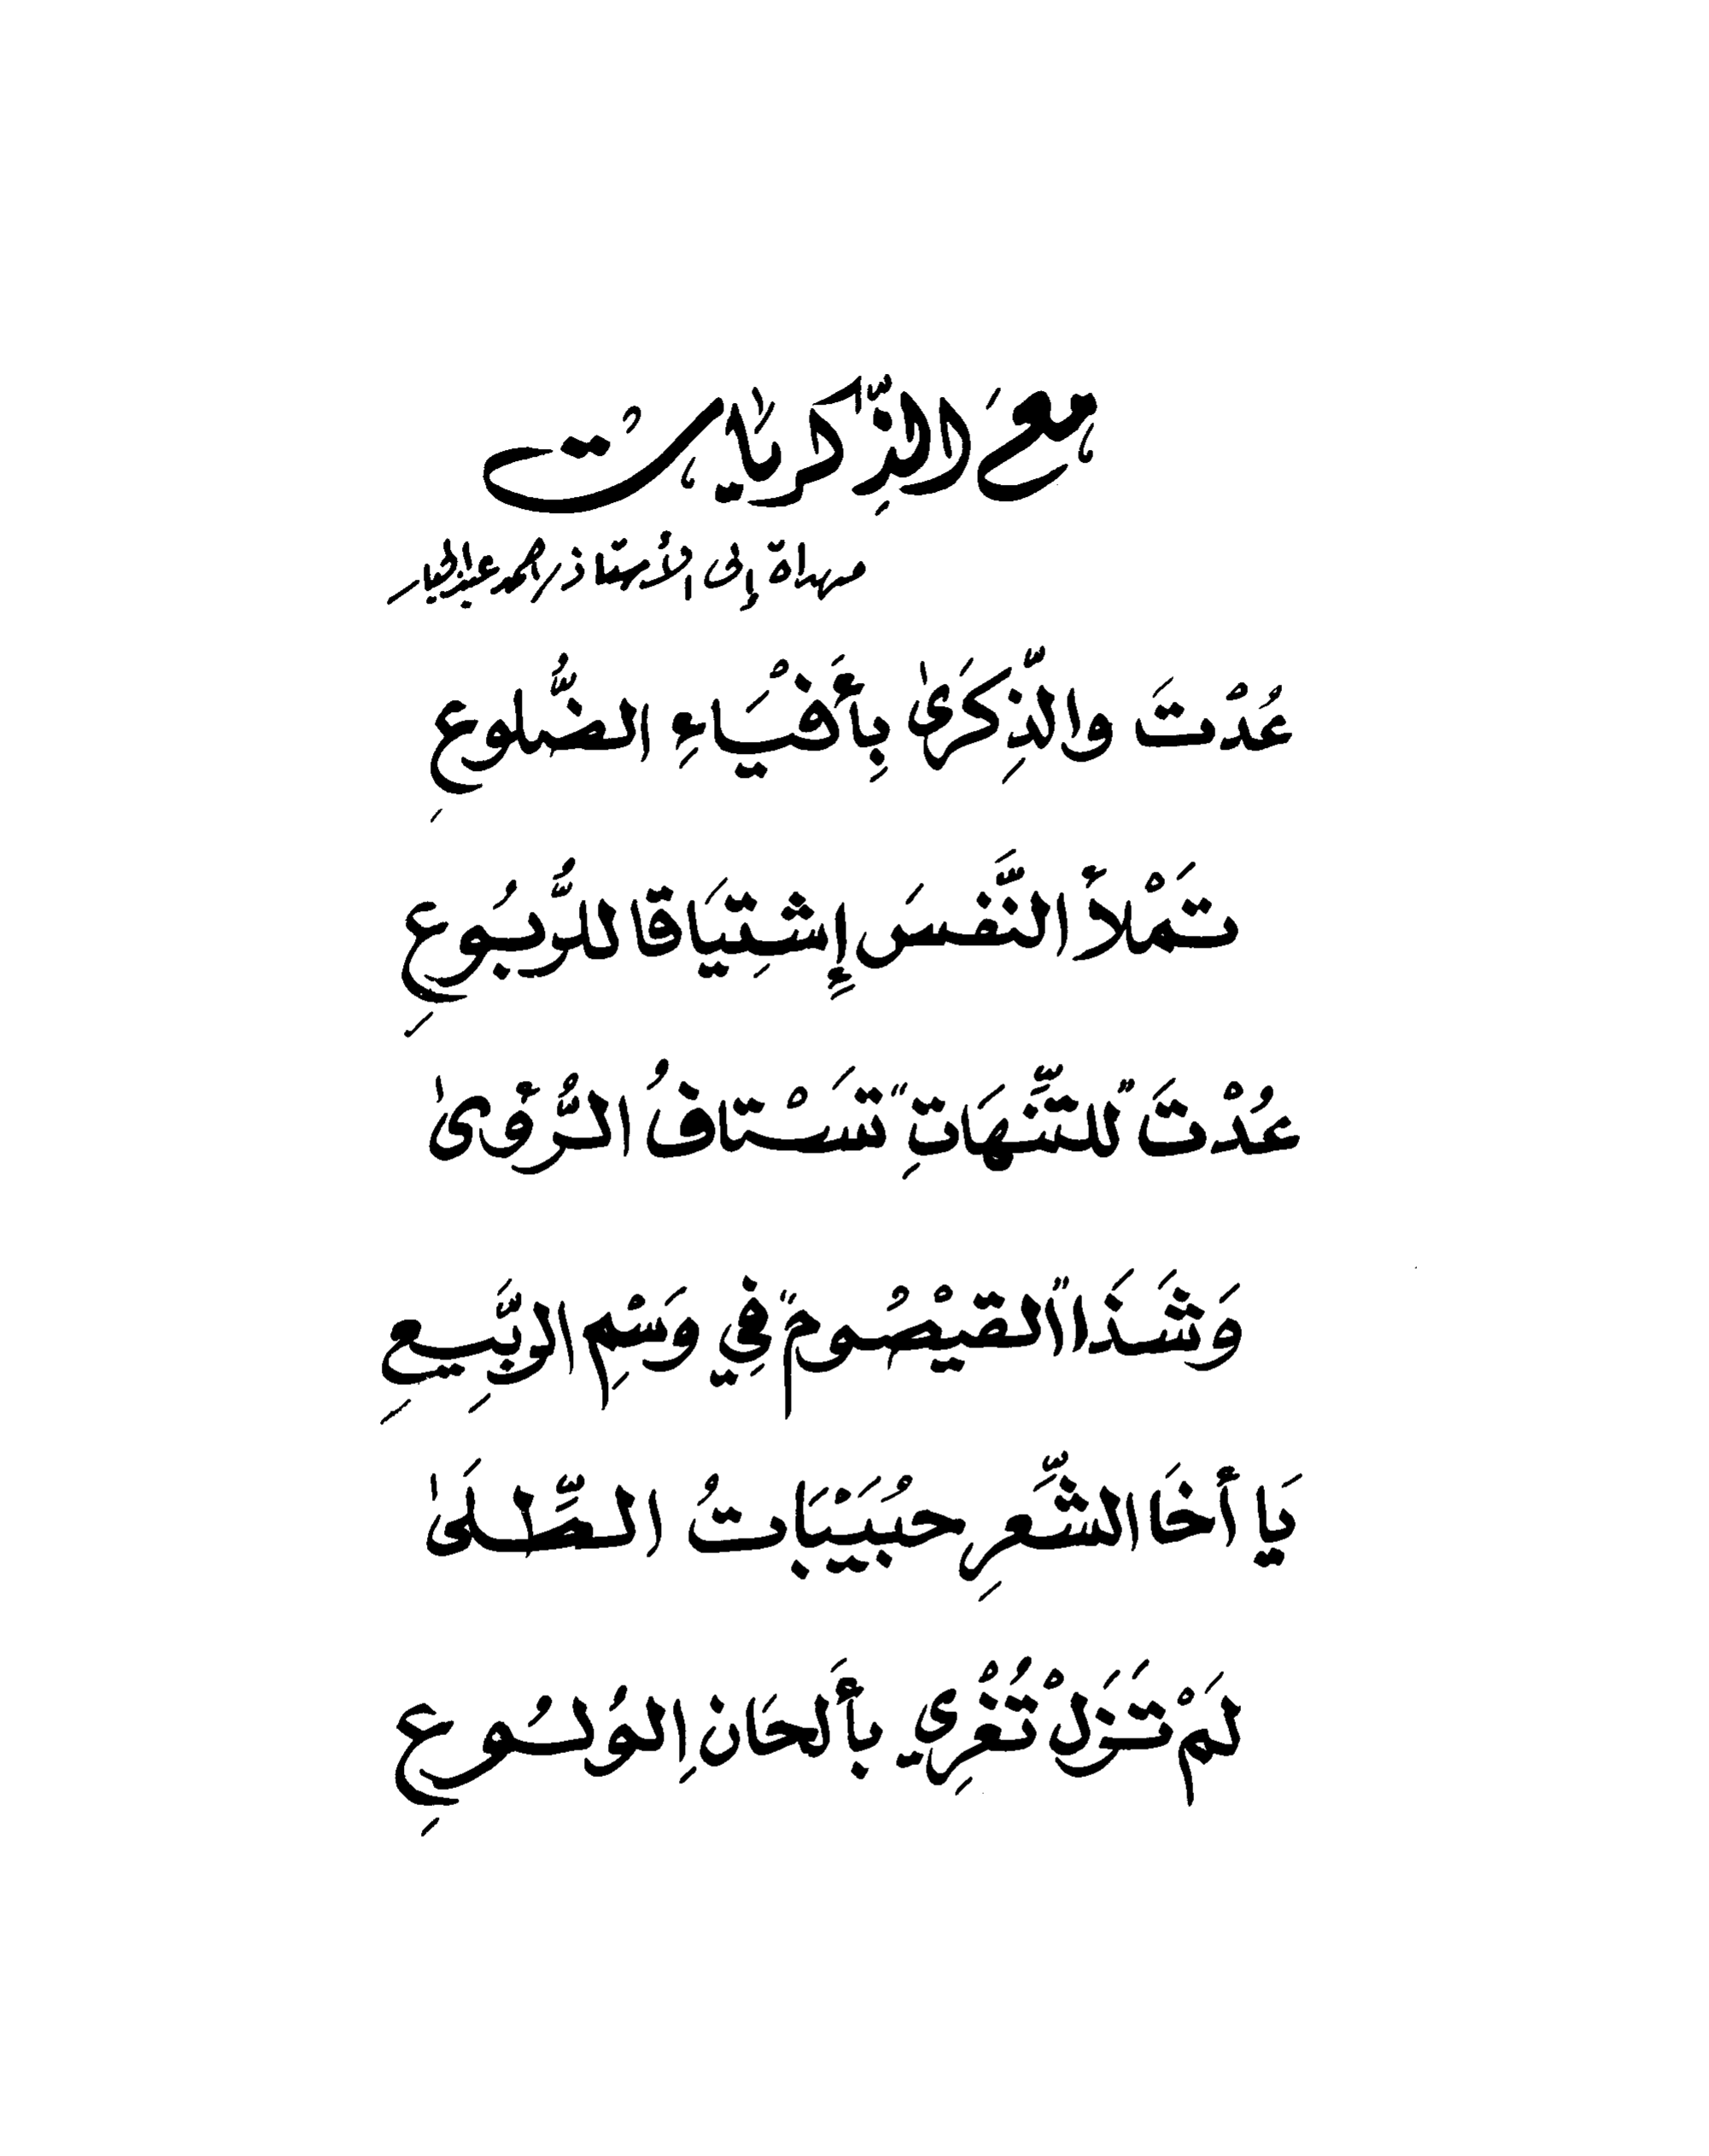 مَعَ الذِّكرَيَاتُ
مهداة إلى الأستاذ زاهد عبد الجبار
عُدْتَ والذِّكَرىٰ بِأَفْيَاءِ الضُّلوعِ
تَمْلأُ النَّفسَ إِشتِيَاقًا للرُّبُوعِ
عُدْتَ "للشَّهَاتِ" تَسْتَافُ الرُّؤىٰ
وَشَذَا "القَيْصُومِ" فِي وَسْمِ الرَّبِيعِ
يَا أَخَا الشَّعرِ حُبَيْبَاتُ الطِّلىٰ
لَمْ تَزَلْ تُغْرِي بأَلحَانِ الوَلُوعِ